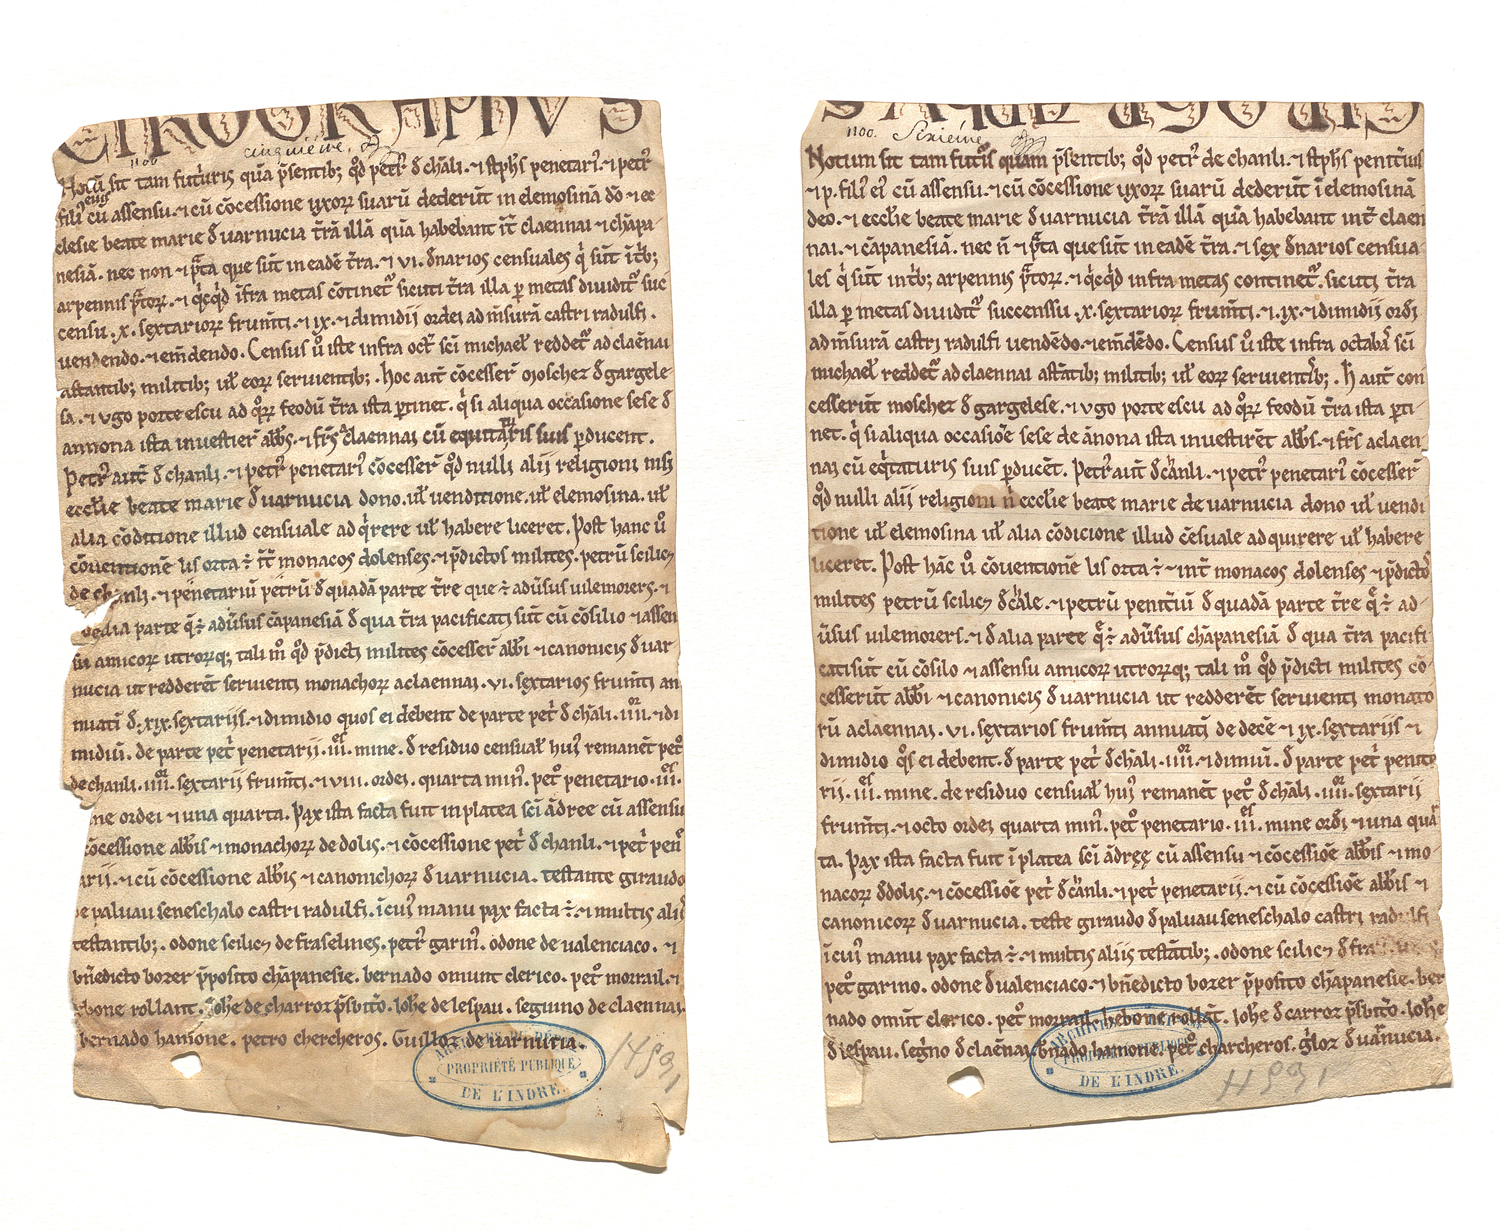 CIROGRAPHVS
1100 cinquieme.
Notũ sit tam futuris quã p̃sentib; qđ petrꝰ đ chãli. ⁊ stephs̃ penetariꝰ. ⁊ petrꝰ
filiꝰ eiꝰ cũ assensu. ⁊ cũ cõcessione uxorꝝ suarũ dederũt in elemosinã dõ ⁊ ec
clesie beate marie đ uarnucia t̃rã illã quã habebant ĩt̃ claennai ⁊ chãpa
nesiã. nec non ⁊ p̃ta que sũt in eadẽ t̃ra. ⁊ vi. đnarios censuales q̓ sũt ĩt̃b;
arpennis p̃torꝝ. ⁊ q̓cq̓d ĩfra metas cõtinetᷣ sicuti t̃ra illa ꝑ metas diuiditᷣ suc
censu. x. sextariorꝝ frum̃ti. ⁊ ix. ⁊ dimidii ordei ad m̃surã castri radulfi.
uendendo. ⁊ em̃dendo. Census ũo iste infra oct̃ sc̃i michael̃ reddetᷣ ad claẽnai
astantib; militib; ul̃ eorꝝ seruientib;. hoc aut̃ cõcesser̃ moschez đ gargele
sa. ⁊ ugo porte escu ad q̊rꝝ feodũ t̃ra ista ꝑtinet. q̓ si aliqua occasione sese đ
annona ista inuestier̃ abb̃s. ⁊ fr̃s a claennai cũ equitaturis suis ꝑducent.
Petrꝰ aut̃ đ chanli. ⁊ petrꝰ penetariꝰ cõcesser̃ qđ nulli alii religioni nisi
eccl̃ie beate marie đ uarnucia dono. ul̃ uenditione. ul̃ elemosina. ul̃
alia cõditione illud censuale ad q̓rere ul̃ habere liceret. Post hanc ũo
cõuentionẽ lis orta ÷ ĩt̃ monacos dolenses. ⁊ p̃dictos milites. petrũ scilicꝫ
de chanli. ⁊ penetariũ petrũ đ quadã parte t̃re que ÷ adũsus uilemorers. ⁊
đ alia parte q̃ ÷ adũsus cãpanesiã đ qua t̃ra pacificati sũt cũ cõsilio ⁊ assen
su amicorꝝ utrorꝝq; tali m̊ qđ p̃dicti milites cõcesser̃ abb̃i ⁊ canonicis đ uar
nucia ut redderẽt seruienti monachorꝝ a claennai. vi. sextarios frum̃ti an
nuati đ. xix. sextariis. ⁊ dimidio quos ei debent de parte pet̓ đ chãli. iiii. ⁊ di
midiũ. de parte pet̓ penetarii. iii. mine. đ residuo censual̃ huiꝰ remanẽt pet̊
de chanli. iiii. sextarii frum̃ti. ⁊ viii. ordei. quarta min̓. pet̊ penetario. iii.
mine ordei ⁊ una quarta. Pax ista facta fuit in platea sc̃i ãdree cũ assensu
cõcessione abb̃is ⁊ monachorꝝ de dolis. ⁊ cõcessione pet̓ đ chanli. ⁊ pet̓ pen̓
arii. ⁊ cũ cõcessione abb̃is ⁊ canonichorꝝ đ uarnucia. testante giraudo
de paluau seneschalo castri radulfi. ĩ cuiꝰ manu pax facta ÷. ⁊ multis aliis
testantib;. odone scilicꝫ de fraselines. petrꝰ garin̓. odone de ualenciaco. ⁊
bñedicto borer p̃posito chãpanesie. bernado omunt clerico. pet̊ morrail. ⁊
erbone rollant. Joh̃e de charroz p̃sbit̊o. Joh̃e de lespau. seguino de claennai.
bernado hanione. petro chercheros. Guilloz de uarnucia.
ARCHIVES DU DÉPT
PROPRIÉTÉ PUBLIQUE
DE L'INDRE
H 891
CIROGRAPHVS
1100. Sixieme
Notum sit tam futuris quam p̃sentib; qđ petrꝰ de chanli. ⁊ stephs̃ penit̓iuꝰ
⁊ p. filiꝰ eiꝰ cũ assensu. ⁊ cũ cõcessione uxorꝝ suarũ dederũt ĩ elemosinã
deo. ⁊ eccl̃ie beate marie đ uarnucia t̃rã illã quã habebant int̃ claen
nai. ⁊ cãpanesiã. nec ñ ⁊ p̃ta que sũt in eadẽ t̃ra. ⁊ sex đnarios censua
les q̓ sũt int̃b; arpennis p̃torꝝ. ⁊ q̓cq̓d infra metas continetᷣ. sicuti t̃ra
illa ꝑ metas diuiditᷣ succenssu. x. sextariorꝝ frum̃ti. ⁊. ix. ⁊ dimidii ordei
ad m̃surã castri radulfi uendẽdo. ⁊ em̃dẽdo. Census ũo iste infra octab̃ sc̃i
michael̃ reddetᷣ ad claennai astãtib; militib; ul̃ eorꝝ seruientib;. h̃ aut̃ con
cesserũt moschez đ gargelese. ⁊ ugo porte escu ad q̊rꝝ feodũ t̃ra ista ꝑti
net. q̓ si aliqua occasiõe sese de ãnona ista inuestirẽt abb̃s. ⁊ fr̃s a claen
nai cũ eq̓taturis suis ꝑducẽt. Petrꝰ aut̃ đ chãnli. ⁊ petrꝰ penetariꝰ cõcesser̃
qđ nulli alii religioni ñ eccl̃ie beate marie de uarnucia dono ul̃ uendi
tione ul̃ elemosina ul̃ alia cõdicione illud cẽsuale ad quirere ul̃ habere
liceret. Post hãc ũo cõuentionẽ lis orta ÷ ⁊ int̃ monacos dolenses ⁊ p̃dictos
milites petrũ scilicꝫ đ chãle. ⁊ petrũ penit̓iũ đ quadã parte t̃re q̃ ÷ ad
ũsus uilemorers. ⁊ đ alia parte q̃ ÷ adũsus chãpanesiã đ qua t̃ra pacifi
cati sũt cũ cõsilo ⁊ assensu amicorꝝ utrorꝝq; tali m̊ qđ p̃dicti milites cõ
cesserũt abb̃i ⁊ canonicis đ uarnucia ut redderẽt seruienti monaco
rũ a claennai. vi. sextarios frum̃ti annuatĩ de decẽ ⁊ ix. sextariis ⁊
dimidio q̊s ei debent. đ parte pet̓ đ chãli. iiii. ⁊ dimiũ. đ parte pet̓ penite
rii. iii. mine. de residuo censual̃ huiꝰ remanẽt pet̊ đ chãli. iiii. sextarii
frum̃ti. ⁊ octo ordei quarta min̓. pet̊ penetario. iii. mine ordei ⁊ una quar
ta. Pax ista facta fuit ĩ platea sc̃i ãdreę cũ assensu ⁊ cõcessiõe abb̃is ⁊ mo
nacorꝝ đ dolis. ⁊ cõcessiõe pet̓ đ chãnli. ⁊ pet̓ penetarii. ⁊ cũ cõcessiõe abb̃is ⁊
canonicorꝝ đ uarnucia. teste giraudo đ paluau seneschalo castri radulfi
ĩ cuiꝰ manu pax facta ÷ ⁊ multis aliis testãtib;. odone scilicꝫ đ fra
pet̊ garino. odone đ ualenciaco. ⁊ bñedicto borer p̃posito chãpanesie. ber
nado omũt clerico. pet̊ morrail. herbone rollãt. Joh̃e đ carroz p̃sbit̊o. Joh̃e
đ lespau. seg̓no đ claẽnai. b̃nado hanione. pet̊ charcheros. g̓loz đ uarnucia.
ARCHIVES DU DÉPT
PROPRIÉTÉ PUBLIQUE
DE L'INDRE.
H 891